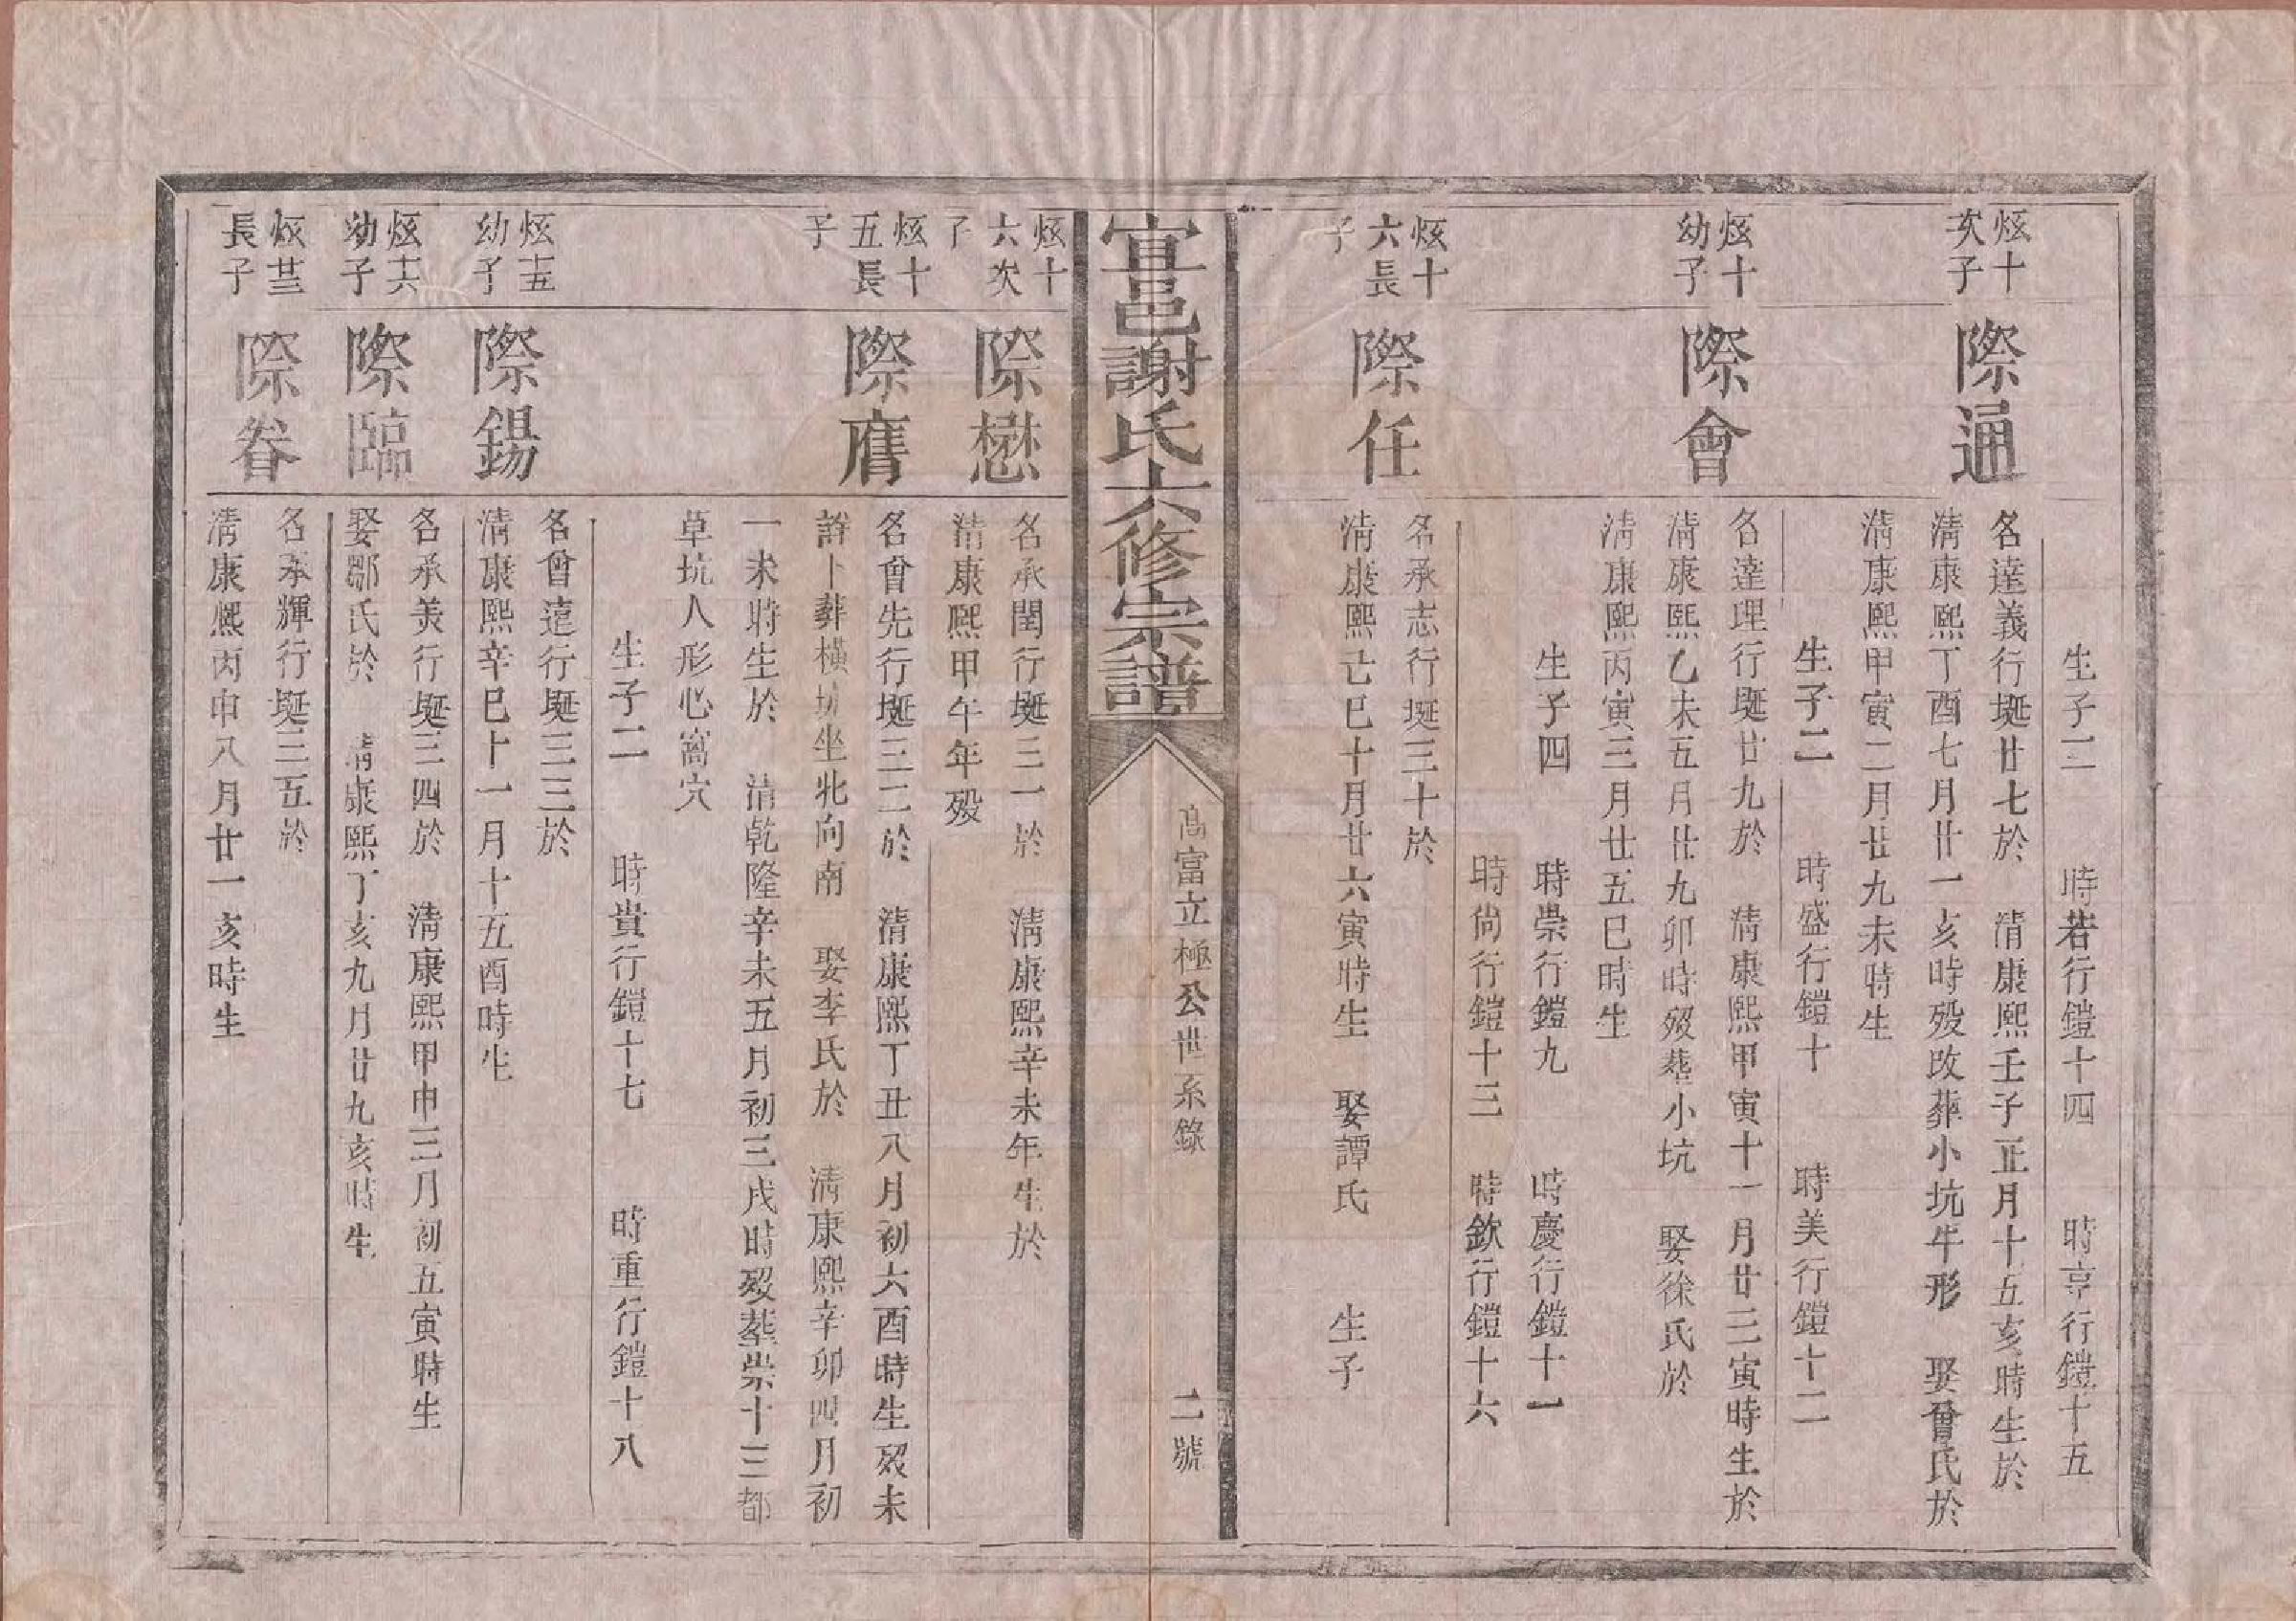 生子二　時若行鎧十四　時亨行鎧十五
炫十
次子
際通
名達義行埏廿七於　清康熙壬子正月十五亥時生於
清康熙丁酉七月廿一亥時歿改葬小坑牛形　娶曾氏於
清康熙甲寅二月廿九未時生
生子二　時盛行鎧十　時美行鎧十二
炫十
幼子
際會
名達理行埏廿九於　清康熙甲寅十一月廿三寅時生於
清康熙乙未五月廿九卯時歿塟小坑　娶徐氏於
清康熙丙寅三月廿五巳時生
生子四　時崇行鎧九　時慶行鎧十一
時尚行鎧十三　時欽行鎧十六
炫十
六長
子
際任
名承志行埏三十於
清康熙己巳十月廿六寅時生　娶譚氏　生子
宜邑謝氏六修宗譜
高富立極公世系錄
二號
炫十
六次
子
際懋
名承閏行埏三一於　清康熙辛未年生於
清康熙甲午年歿
炫十
五長
子
際膺
名曾先行埏三二於　清康熙丁丑八月初六酉時生歿未
詳卜葬橫坑坐北向南　娶李氏於　清康熙辛卯四月初
一未時生於　清乾隆辛未五月初三戌時歿塟崇十三都
草坑人形心窩穴
生子二　時貴行鎧十七　時重行鎧十八
炫十五
幼子
際錫
名曾遠行埏三三於
清康熙辛巳十一月十五酉時生
炫十六
幼子
際臨
名承美行埏三四於　清康熙甲申三月初五寅時生
娶鄒氏於　清康熙丁亥九月廿九亥時生
炫廿三
長子
際眷
名承輝行埏三五於
清康熙丙申八月廿一亥時生